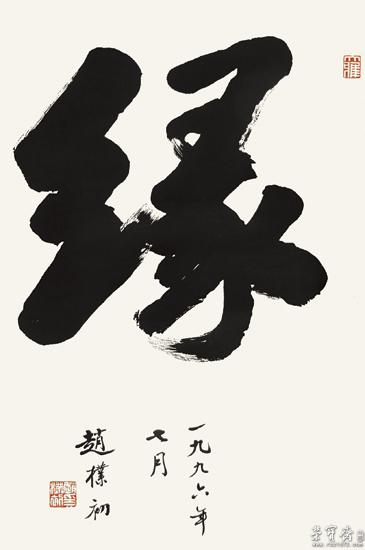 缘
一九九六年
七月
趙樸初
荣宝斋